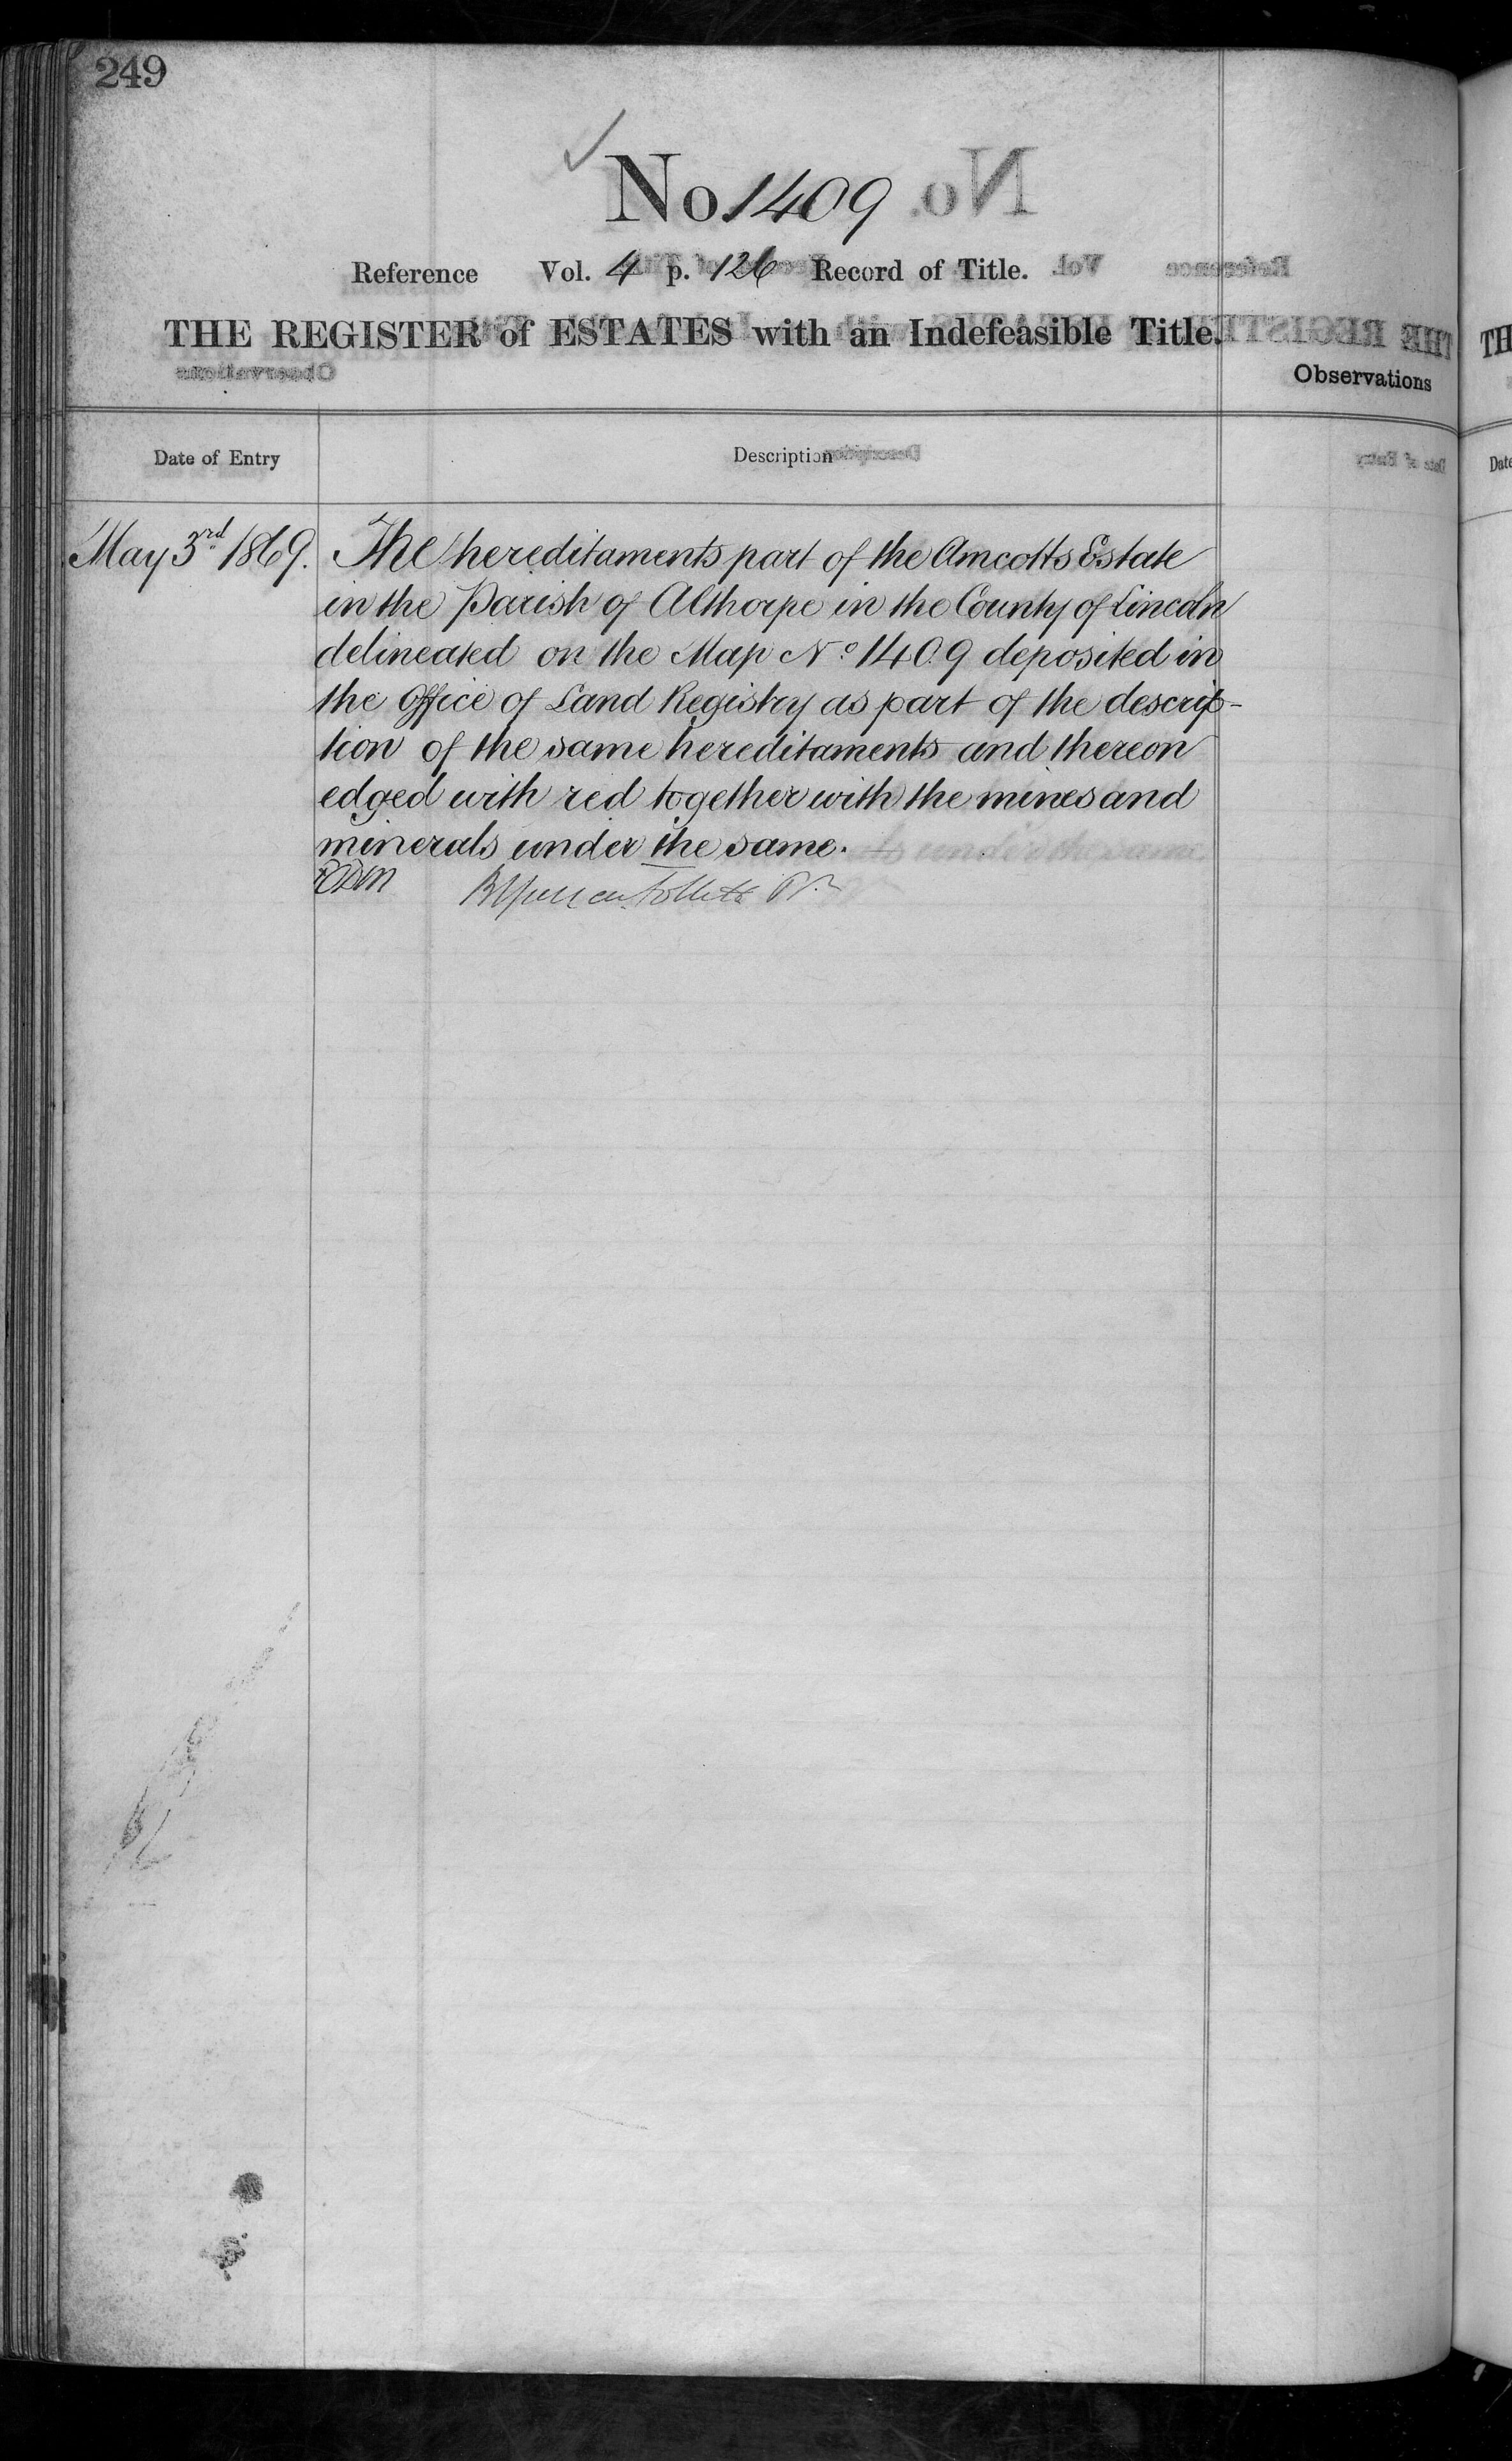 249
No. 1409
Reference Vol. 4 p. 126 Record of Title.
THE REGISTER of ESTATES with an Indefeasible Title.
Observations
Date of Entry
Description
May 3rd 1869.
The hereditaments part of the Amcotts Estate
in the Parish of Althorpe in the County of Lincoln
delineated on the Map No 1409 deposited in
the Office of Land Registry as part of the descrip-
tion of the same hereditaments and thereon
edged with red together with the mines and
minerals under the same.
Follett
TH
Date